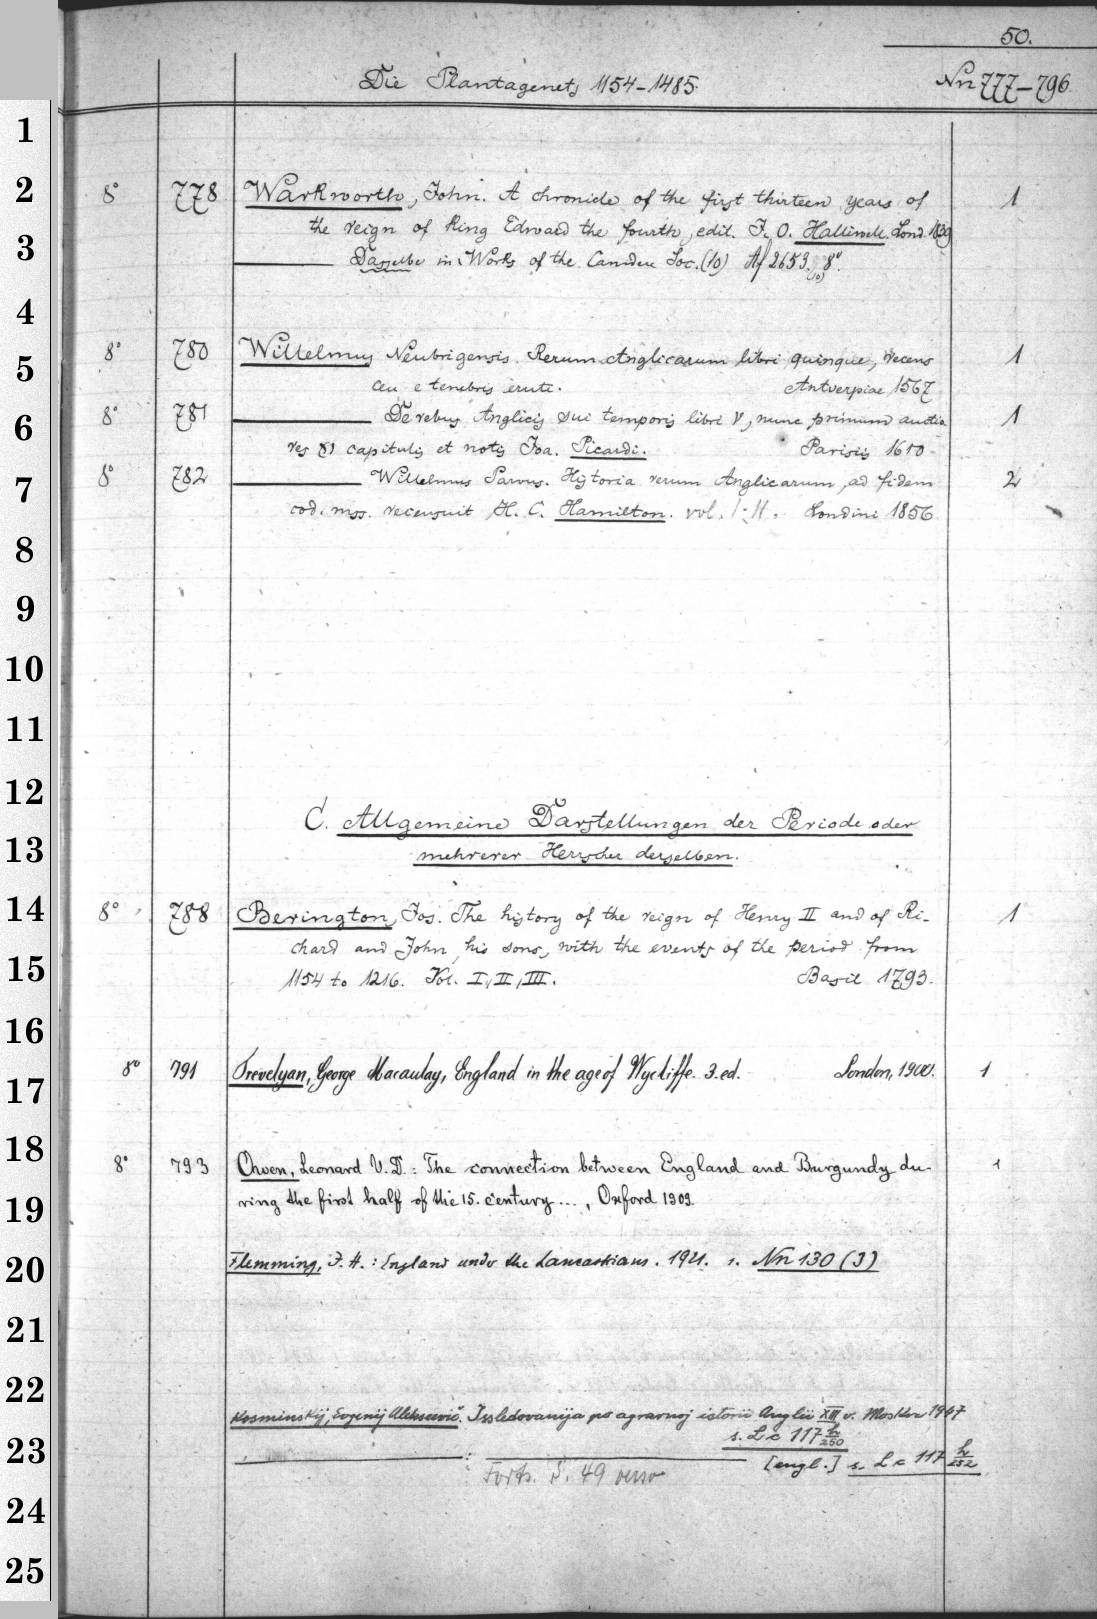 50.
Die Plantagenets 1154-1485.
Nn 777-796
8° 778 Warkworth, John. A chronicle of the first thirteen years of 1
the reign of King Edward the fourth, edit. J. O. Halliwell. Lond. 1839
Dasselbe in: Works of the Camden Soc. (10) Af 2653 (10) 8°.
8° 780 Willelmus Neubrigensis. Rerum Anglicarum libri quinque, recens 1
ceu e tenebris eruti. Antverpiae 1567
8° 781 De rebus Anglicis sui temporis libri V, nunc primum auctio 1
res XI capitulis et notis Joa. Picardi. Parisiis 1610
8° 782 Willelmus Parvus. Historia rerum Anglicarum, ad fidem 2
cod. mss. recensuit H. C. Hamilton. vol. I-II. Londini 1856
C. Allgemeine Darstellungen der Periode oder
mehrerer Herrscher derselben.
8° 788 Berington, Jos. The history of the reign of Henry II and of Ri- 1
chard and John, his sons, with the events of the period from
1154 to 1216. Vol. I, II, III. Basil 1793.
8° 791 Trevelyan, George Macaulay, England in the age of Wycliffe. 3. ed. London, 1900. 1
8° 793 Owen, Leonard V. D.: The connection between England and Burgundy du- 1
ring the first half of the 15. century..., Oxford 1909.
Flemming, J. H.: England under the Lancastrians. 1921. s. Nn 130 (3)
Kosminskij, Evgenij Alekseevič. Issledovanija po agrarnoj istorii Anglii XIII v. Moskva 1947
s. Lc 117 h/250
[engl.] s. Lc 117 h/252
Forts. S. 49 verso
1
2
3
4
5
6
7
8
9
10
11
12
13
14
15
16
17
18
19
20
21
22
23
24
25